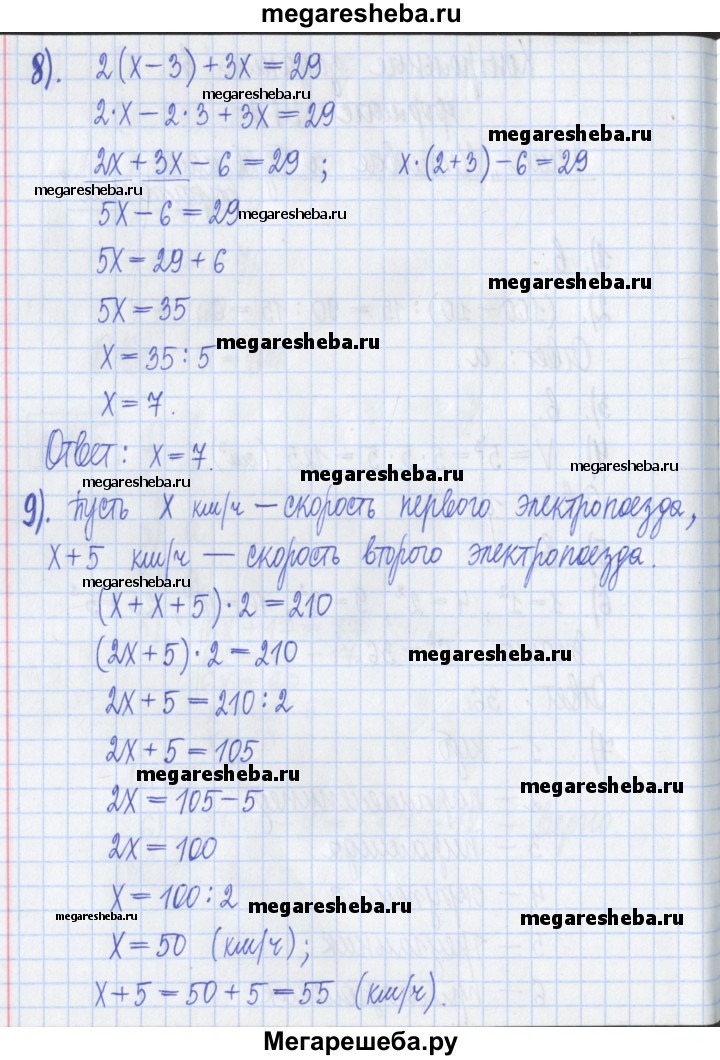 megaresheba.ru
8). 2(x-3)+3x=29
megaresheba.ru
2·x-2·3+3x=29
megaresheba.ru
2x+3x-6=29; x·(2+3)-6=29
megaresheba.ru
5x-6=29
megaresheba.ru
5x=29+6
megaresheba.ru
5x=35
megaresheba.ru
x=35:5
x=7.
Ответ: x=7.
megaresheba.ru
megaresheba.ru
megaresheba.ru
9). Пусть x км/ч – скорость первого электропоезда,
x+5 км/ч – скорость второго электропоезда.
megaresheba.ru
(x+x+5)·2=210
(2x+5)·2=210
megaresheba.ru
2x+5=210:2
2x+5=105
megaresheba.ru
megaresheba.ru
2x=105-5
2x=100
x=100:2
megaresheba.ru
megaresheba.ru
megaresheba.ru
x=50 (км/ч);
x+5=50+5=55 (км/ч).
Мегарешеба.ру